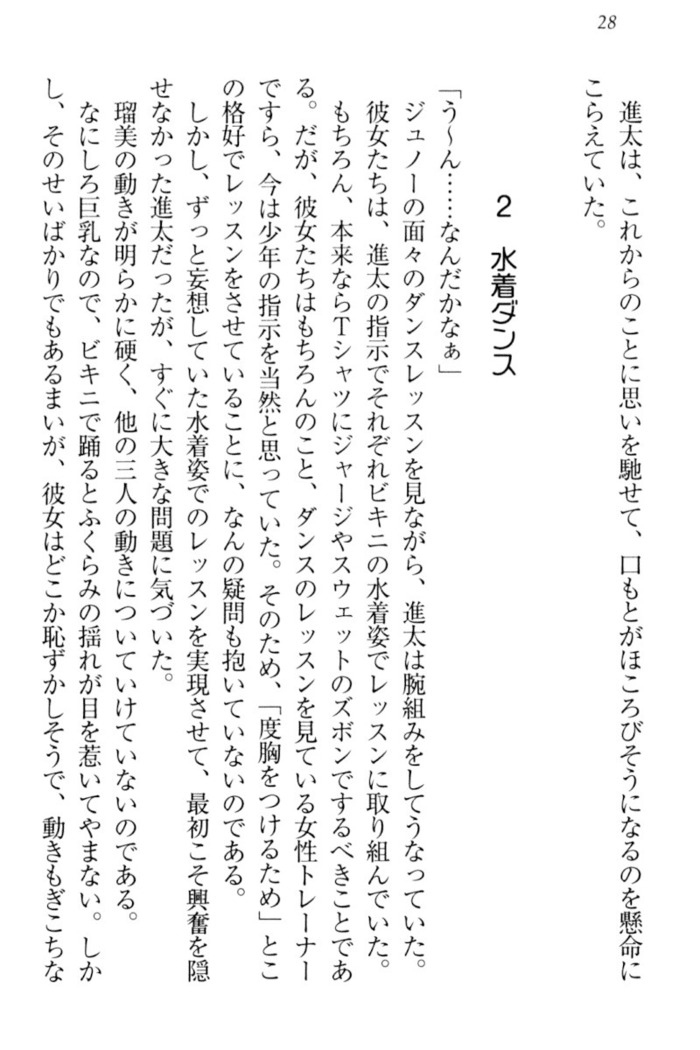 28
進太は、これからのことに思いを馳せて、口もとがほころびそうになるのを懸命に
こらえていた。
2 水着ダンス
「う〜ん……なんだかなぁ」
ジュノーの面々のダンスレッスンを見ながら、進太は腕組みをしてうなっていた。
彼女たちは、進太の指示でそれぞれビキニの水着姿でレッスンに取り組んでいた。
もちろん、本来ならTシャツにジャージやスウェットのズボンでするべきことであ
る。だが、彼女たちはもちろんのこと、ダンスのレッスンを見ている女性トレーナー
ですら、今は少年の指示を当然と思っていた。そのため、「度胸をつけるため」とこ
の格好でレッスンをさせていることに、なんの疑問も抱いていないのである。
しかし、ずっと妄想していた水着姿でのレッスンを実現させて、最初こそ興奮を隠
せなかった進太だったが、すぐに大きな問題に気づいた。
瑠美の動きが明らかに硬く、他の三人の動きについていけていないのである。
なにしろ巨乳なので、ビキニで踊るとふくらみの揺れが目を惹いてやまない。しか
し、そのせいばかりでもあるまいが、彼女はどこか恥ずかしそうで、動きもぎこちな